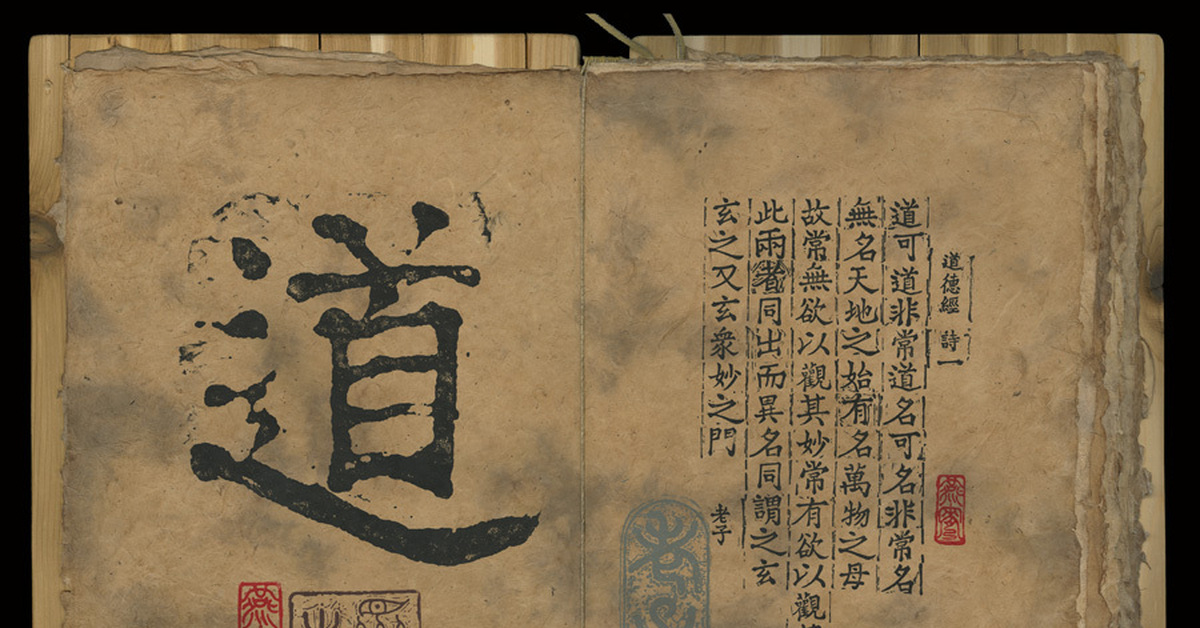 道德經 詩一
道可道非常道名可名非常名
無名天地之始有名萬物之母
故常無欲以觀其妙常有欲以觀
此兩者同出而異名同謂之玄
玄之又玄衆妙之門
老子
道